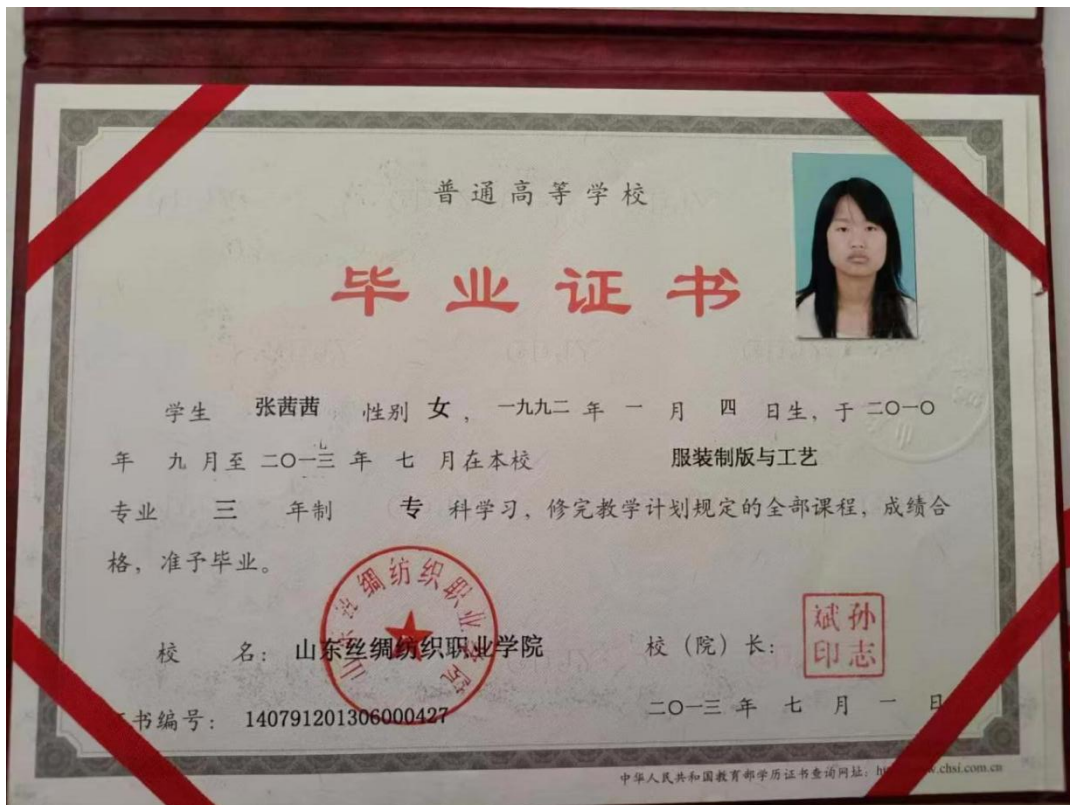 普通高等学校
毕业证书
学生 张茜茜 性别 女，一九九二 年 一 月 四 日生，于 二〇一〇
年 九 月至 二〇一三 年 七 月在本校 服装制版与工艺
专业 三 年制 专 科学习，修完教学计划规定的全部课程，成绩合
格，准予毕业。
校 名：山东丝绸纺织职业学院 校（院）长：
山东丝绸纺织职业学院
孙志斌印
书编号：140791201306000427 二〇一三 年 七 月 一 日
中华人民共和国教育部学历证书查询网址：w.chsi.com.cn